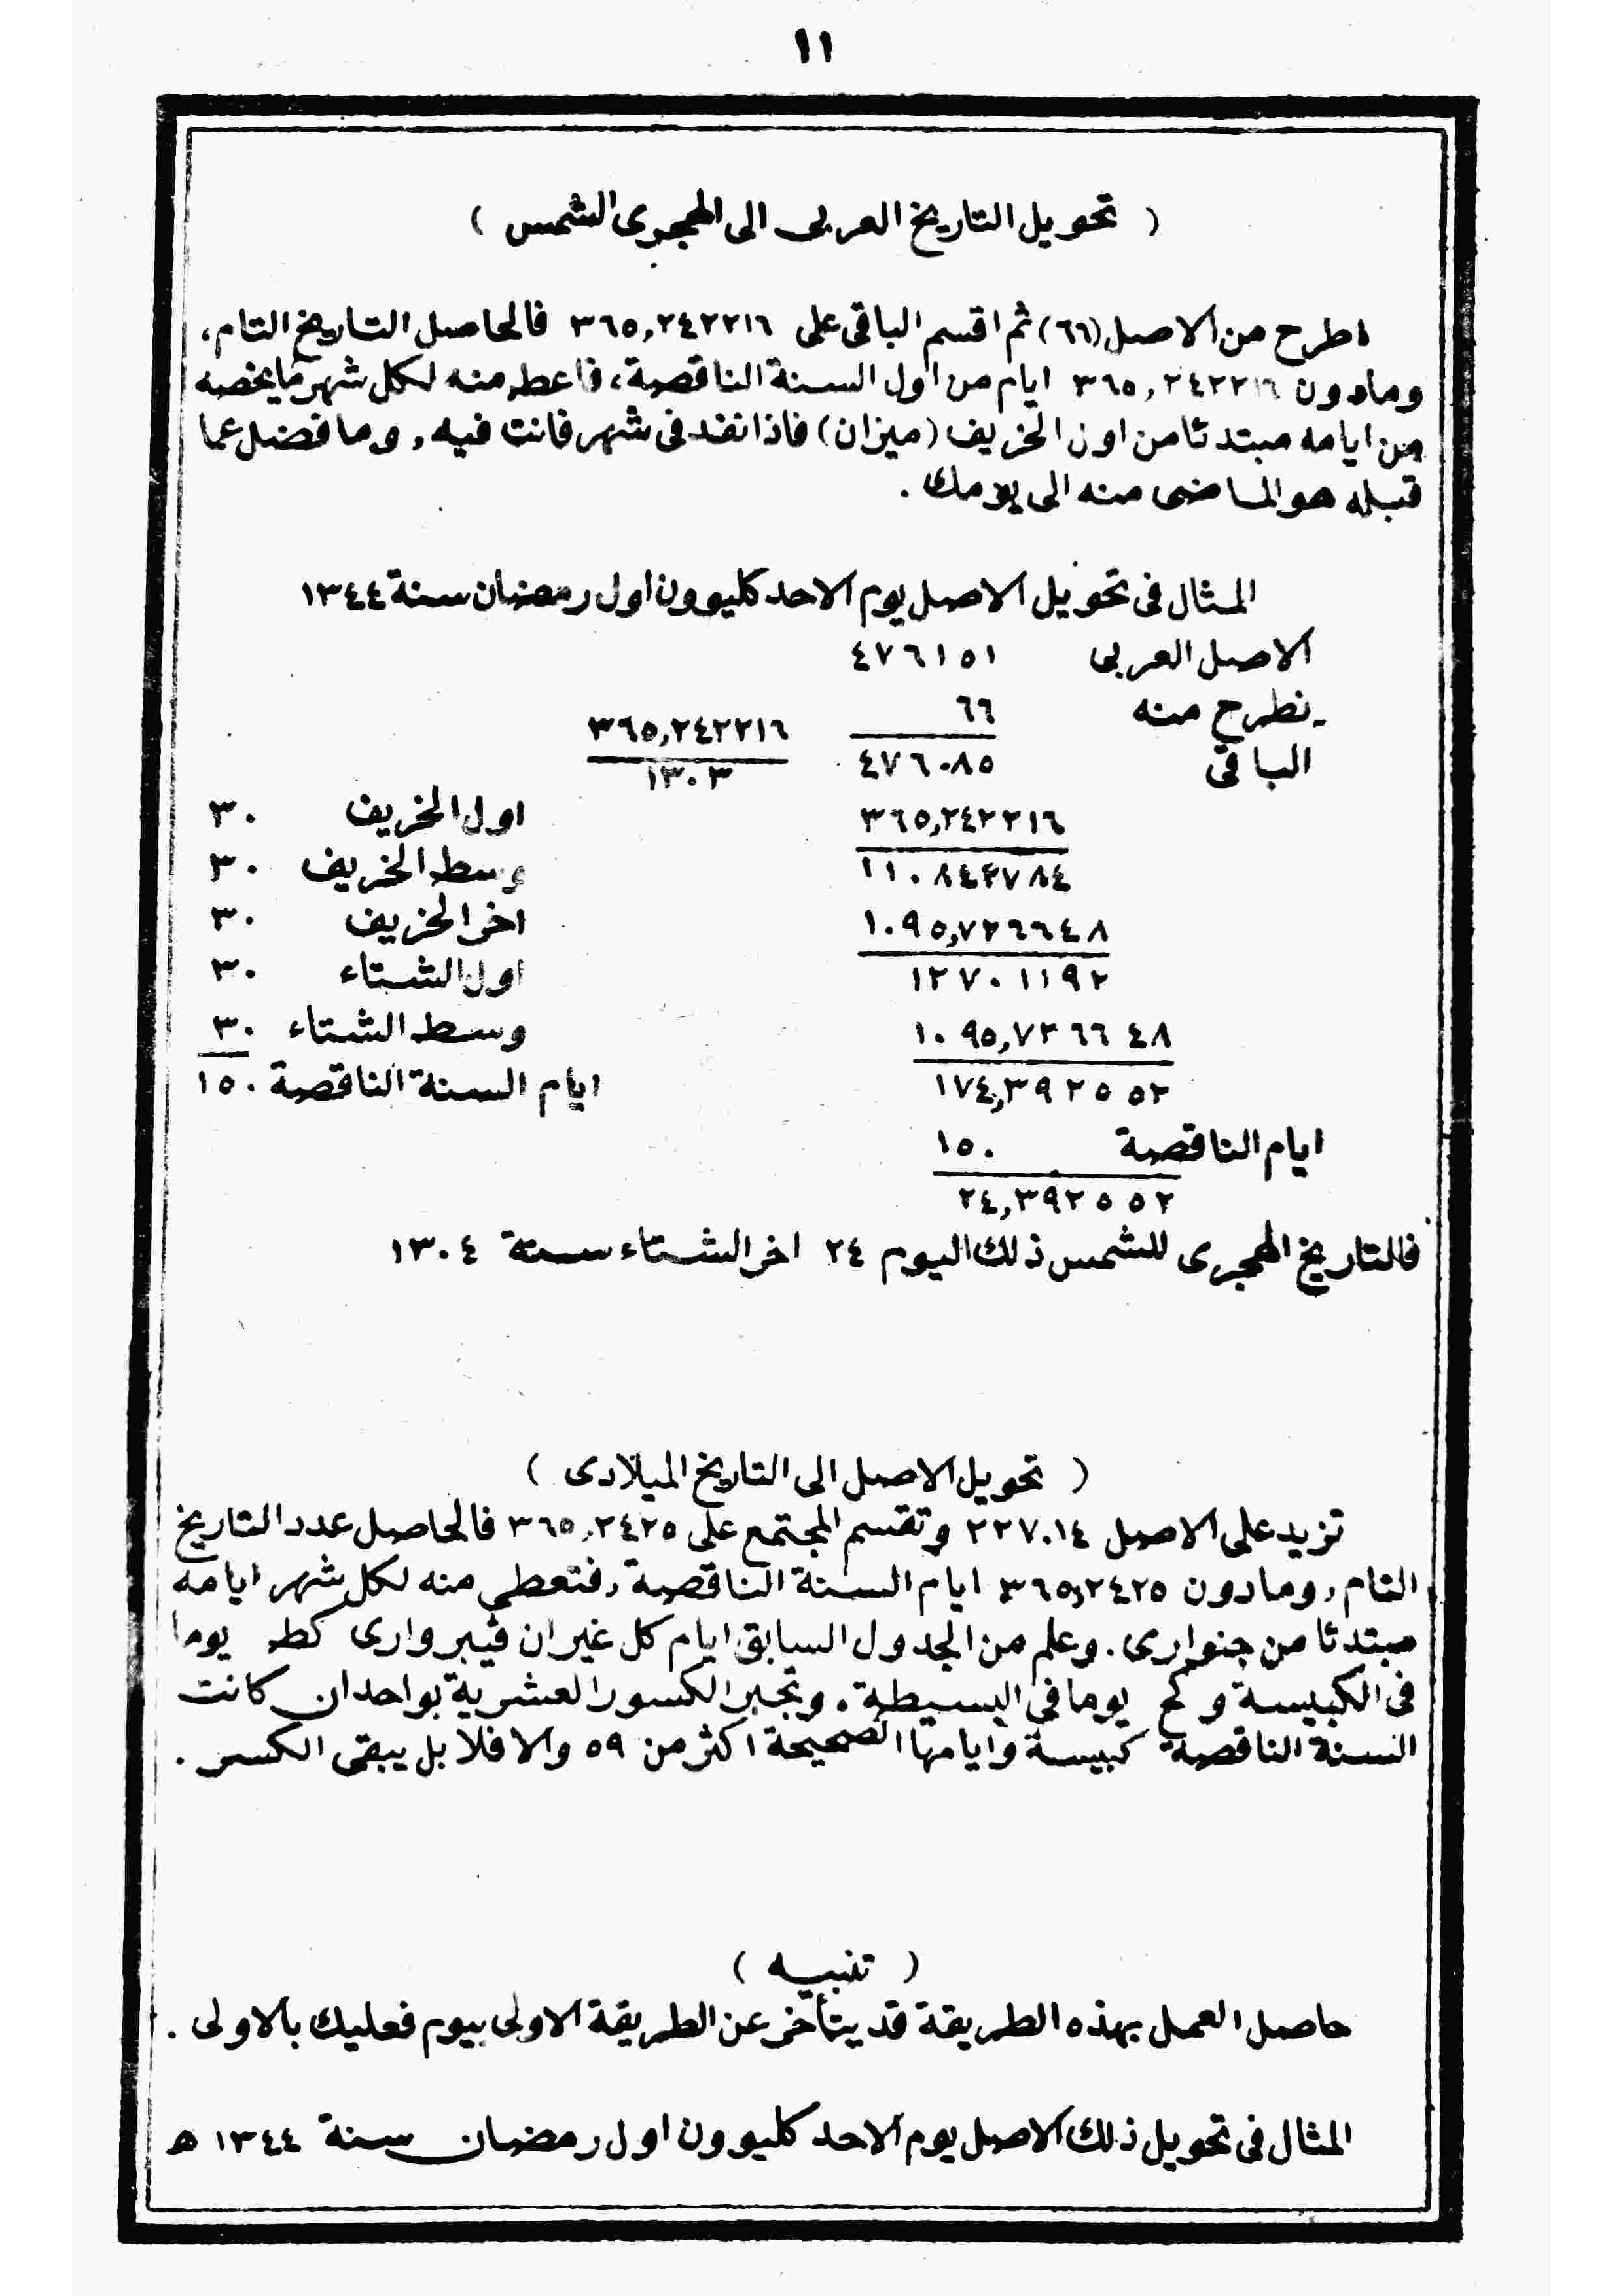 ١١
( تحويل التاريخ العربى الى الهجرى الشمس )
اطرح من الاصل (٦٦) ثم اقسم الباقى على ٣٦٥,٢٤٢٢١٦ فالحاصل التاريخ التام،
ومادون ٣٦٥,٢٤٢٢١٦ ايام من اول السنة الناقصة، فاعط منه لكل شهر مايخصه
من ايامه مبتدئا من اول الخريف (ميزان) فاذا نفد فى شهر فانت فيه, وما فضل عما
قبله هو الماضى منه الى يومك .
المثال فى تحويل الاصل يوم الاحد كليوون اول رمضان سنة ١٣٤٤
الاصل العربى ٤٧٦١٥١
نطرح منه ٦٦
الباقى ٤٧٦٠٨٥ ٣٦٥,٢٤٢٢١٦
١٣٠٣
٣٦٥,٢٤٢٢١٦ اول الخريف ٣٠
١١٠٨٤٢٧٨٤ وسط الخريف ٣٠
١٠٩٥,٧٢٦٦٤٨ اخر الخريف ٣٠
١٢٧٠١١٩٢ اول الشتاء ٣٠
١٠٩٥,٧٢٦٦٤٨ وسط الشتاء ٣٠
١٧٤,٣٩٢٥٥٢ ايام السنة الناقصة ١٥٠
ايام الناقصة ١٥٠
٢٤,٣٩٢٥٥٢
فالتاريخ الهجرى للشمس ذلك اليوم ٢٤ اخر الشتاء سنة ١٣٠٤
( تحويل الاصل الى التاريخ الميلادى )
تزيد على الاصل ٢٢٧٠١٤ وتقسم المجتمع على ٣٦٥,٢٤٢٥ فالحاصل عدد التاريخ
التام, ومادون ٣٦٥,٢٤٢٥ ايام السنة الناقصة, فتعطى منه لكل شهر ايامه
مبتدئا من جنوارى. وعلم من الجدول السابق ايام كل غير ان فيبروارى كط يوما
فى الكبيسة و كح يوما فى البسيطة. وتجبر الكسور العشرية بواحد ان كانت
السنة الناقصة كبيسة وايامها الصحيحة اكثر من ٥٩ والا فلا بل يبقى الكسر .
( تنبيه )
حاصل العمل بهذه الطريقة قد يتأخر عن الطريقة الاولى بيوم فعليك بالاولى .
المثال فى تحويل ذلك الاصل يوم الاحد كليوون اول رمضان سنة ١٣٤٤ ه